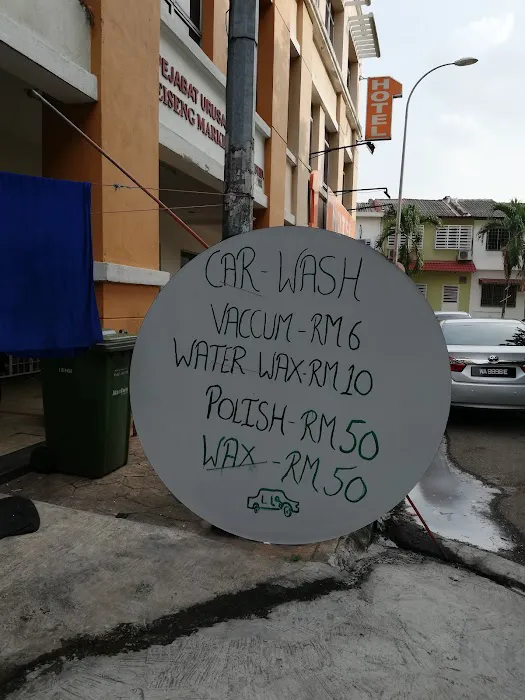 EJABAT URUSA
EISENG MARK
HOTEL
CAR-WASH
VACCUM-RM6
WATER WAX-RM10
POLISH-RM50
WAX-RM50